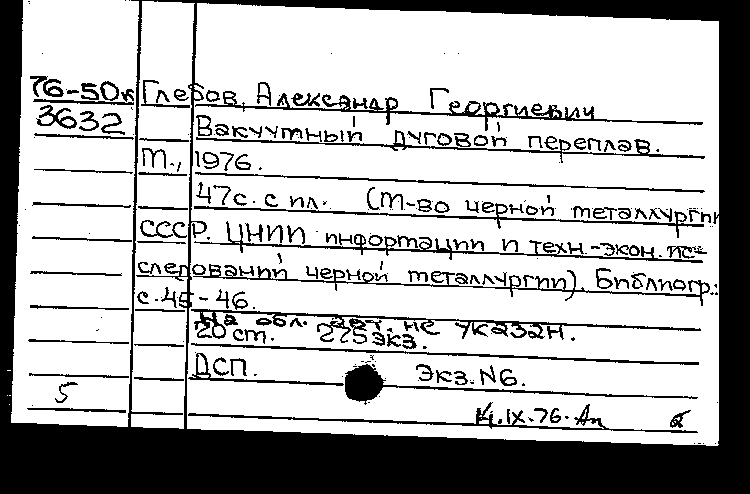 76-50к Глебов, Александр Георгиевич
3632 Вакуумный дуговой переплав.
М., 1976.
47с. с ил. (М-во черной металлургии
СССР. ЦНИИ информации и техн.-экон. ис-
следований черной металлургии). Библиогр.:
с.45-46.
На обл. авт. не указан.
20 ст. 225 экз.
ДСП. Экз. N6.
5 14.IX.76.